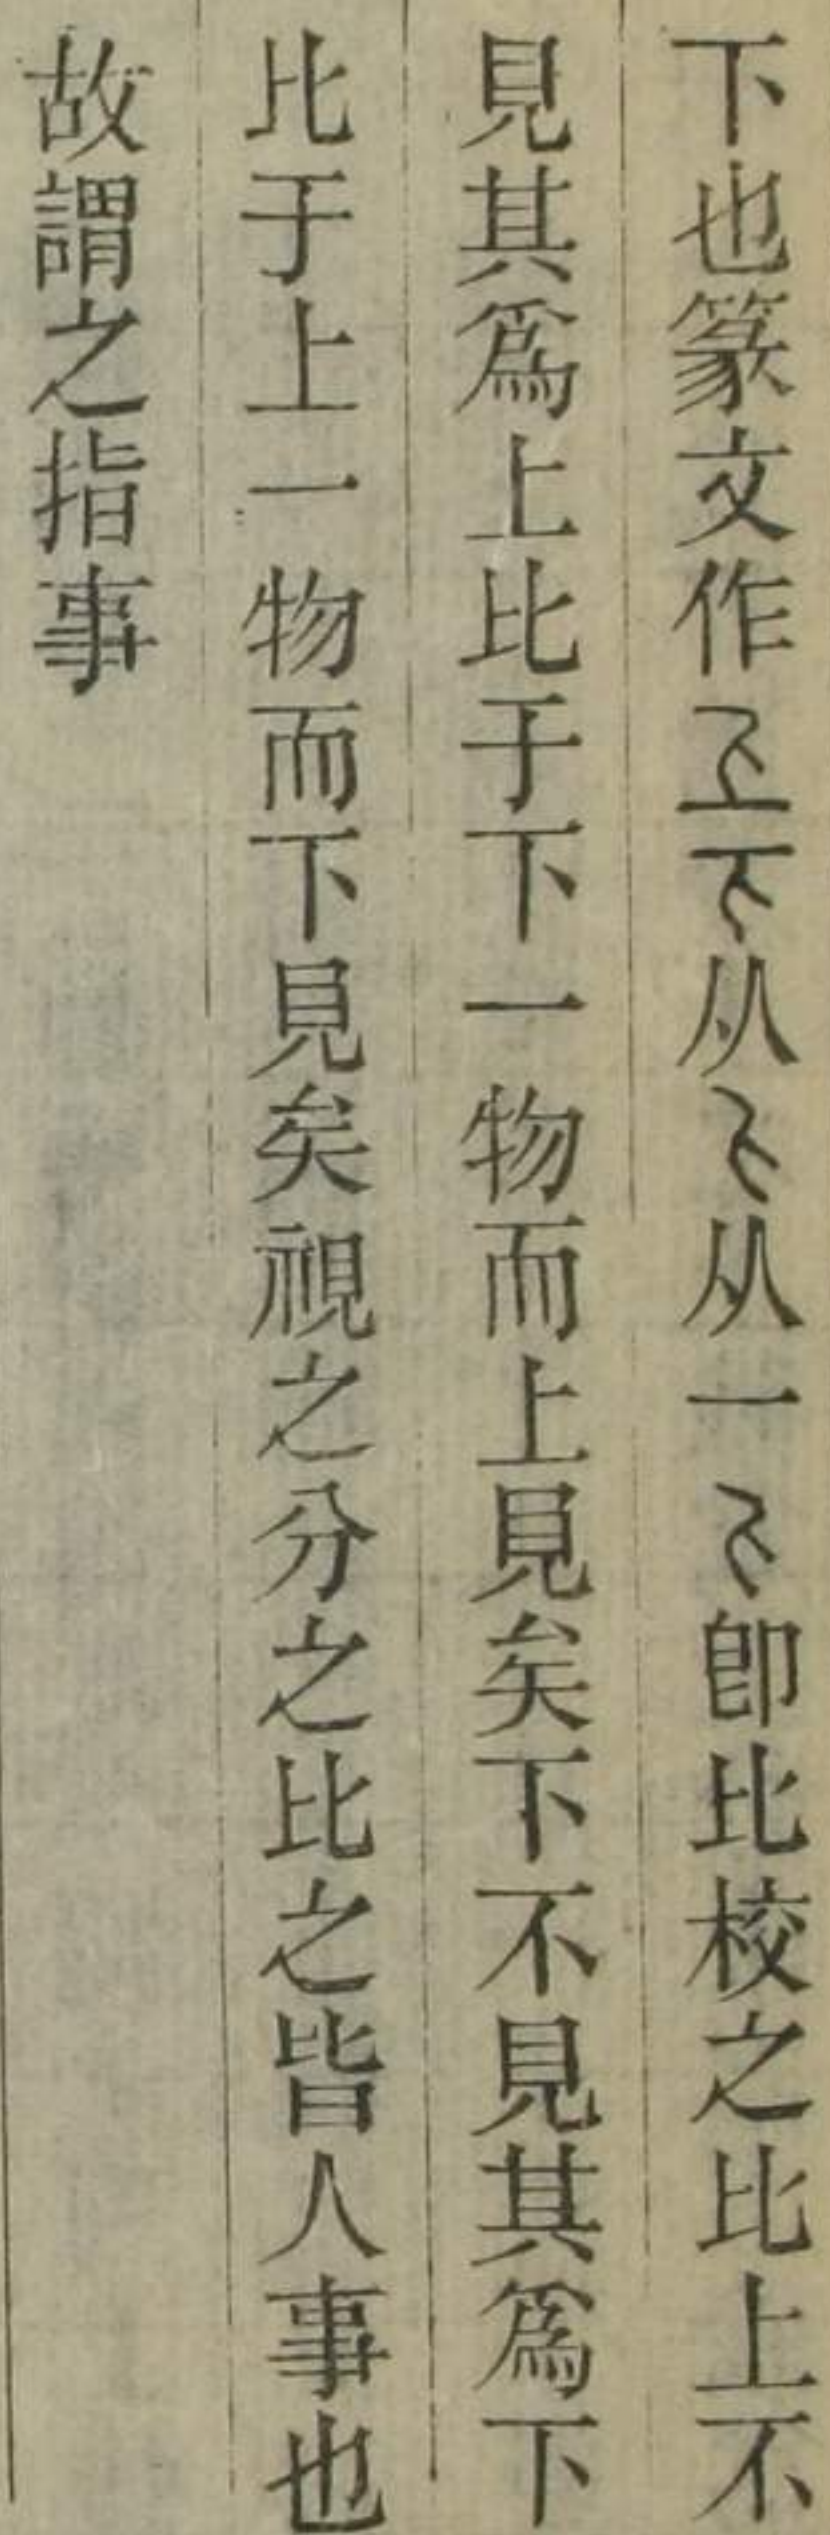 下也篆文作从从一即比校之比上不
見其爲上比于下一物而上見矣下不見其爲下
比于上一物而下見矣視之分之比之皆人事也
故謂之指事